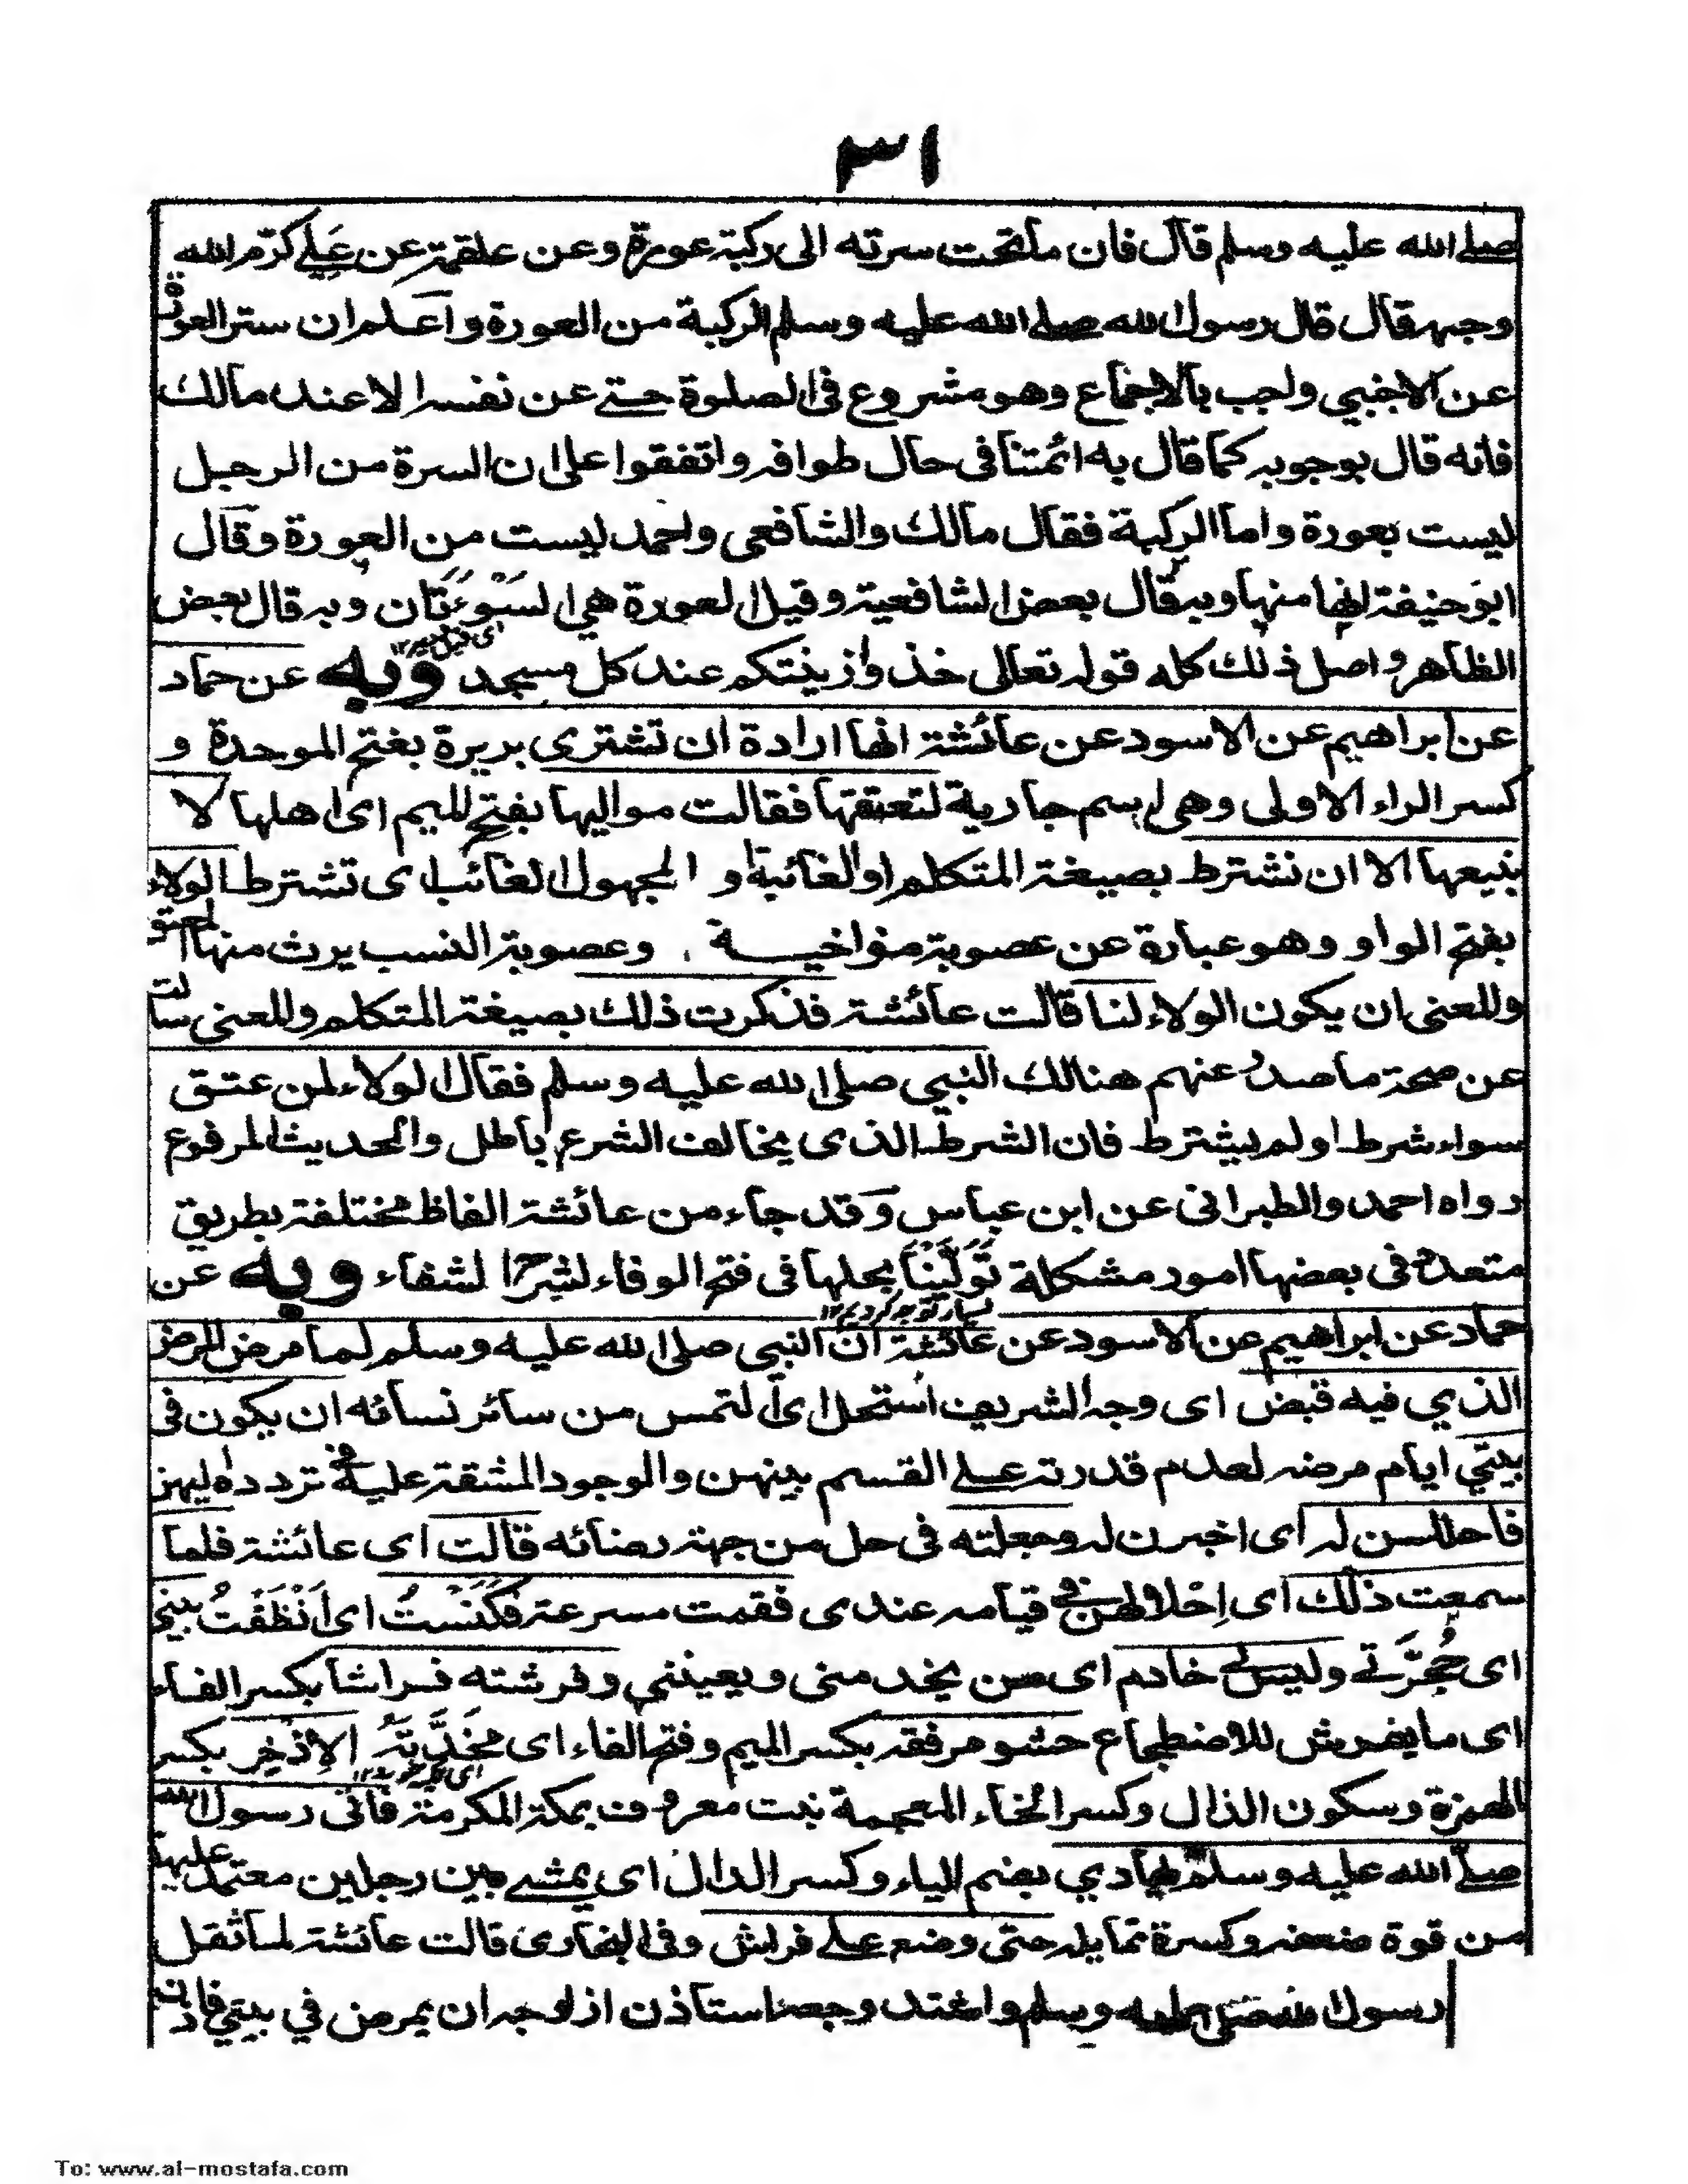 ٣١
صلے الله عليه وسلم قال فان ما تحت سرته الى ركبته عورة وعن علقمة عن علے كرّم الله
وجهه قال قال رسول الله صلے الله عليه وسلم الركبة من العورة واعلم ان ستر العورة
عن الاجنبي واجب بالاجماع وهو مشروع فى الصلوة حتے عن نفسه الا عند مالك
فانه قال بوجوبه كما قال به ائمتنا فى حال طوافه واتفقوا على ان السرة من الرجل
ليست بعورة واما الركبة فقال مالك والشافعى واحمد ليست من العورة وقال
ابو حنيفة انها منها وبه قال بعض الشافعية وقيل العورة هى السَوْءَتَان وبه قال بعض
الظاهر واصل ذلك كله قوله تعالى خذوا زينتكم عند كل مسجد وبه عن حماد
عن ابراهيم عن الاسود عن عائشة انها ارادة ان تشترى بريرة بفتح الموحدة و
كسر الراء الاولى وهى اسم جارية لتعتقها فقالت مواليها بفتح الميم اى اهلها لا
نبيعها الا ان نشترط بصيغة المتكلم او الغائبة او المجهول الغائب اى تشترط الولاء
بفتح الواو وهو عبارة عن عصوبة متراخية وعصوبة النسب يرث منها المعتق
والمعنى ان يكون الولاء لنا قالت عائشة فذكرت ذلك بصيغة المتكلم والمعنى سالت
عن صحة ما صدر عنهم هنالك النبي صلى الله عليه وسلم فقال الولاء لمن عتق
سواء شرط او لم يشترط فان الشرط الذى يخالف الشرع باطل والحديث المرفوع
رواه احمد والطبرانى عن ابن عباس وقد جاء من عائشة الفاظ مختلفة بطريق
متعددة فى بعضها امور مشكلة تَوَلَّيْنَا بحلها فى فتح الوفاء لشرح الشفاء وبه عن
حماد عن ابراهيم عن الاسود عن عائشة ان النبي صلى الله عليه وسلم لما مرض المرض
الذي فيه قبض اى وجه الشريف استحل اى التمس من سائر نسائه ان يكون فى
بيتي ايام مرضه لعدم قدرته علے القسم بينهن والوجود المشقة عليه فى تردده اليهن
فاحللن له اى اخبرن له وجعلته فى حل من جهة رضائه قالت اى عائشة فلما
سمعت ذلك اى اِحْلالهن فى قيامه عندى فقمت مسرعة فكَنَسْتُ اى اَنْظَفْتُ بيتي
اى حُجْرَتے وليس لے خادم اى من يخدمنى ويعيننى وفرشته فراشا بكسر الفاء
اى ما يفرش للاضطجاع حشو مرفقه بكسر الميم وفتح الفاء اى مِخَدَّتِهُ الاِذْخِر بكسر
الهمزة وسكون الذال وكسر الخاء المعجمة نبت معروف بمكة المكرمة فاتى رسول الله
صلے الله عليه وسلم يهادي بضم الياء وكسر الدال اى يمشے بين رجلين معتمد عليهما
من قوة ضعفه وكسرة تمايله حتى وضع علے فراش وفى البخارى قالت عائشة لما ثقل
رسول الله صلى الله عليه وسلم واشتد وجعه استاذن ازواجه ان يمرض في بيتي فاذن
To: www.al-mostafa.com